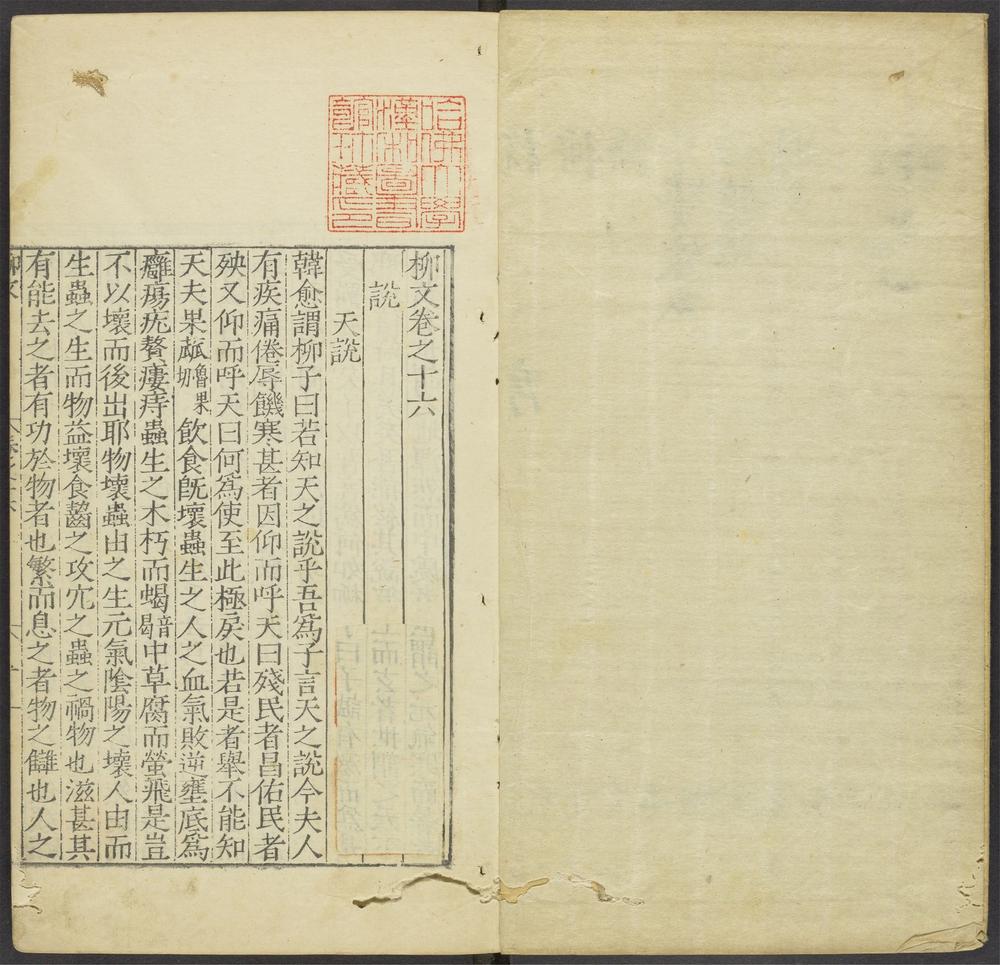 哈佛大學
漢和圖書
館珍藏印
柳文卷之十六
說
天說
韓愈謂柳子曰若知天之說乎吾爲子言天之說今夫人
有疾痛倦辱饑寒甚者因仰而呼天曰殘民者昌佑民者
殃又仰而呼天曰何爲使至此極戾也若是者舉不能知
天夫果蓏魯果切飲食旣壞蟲生之人之血氣敗逆壅底爲
癰瘍疣贅瘻痔蟲生之木朽而蝎音曷中草腐而螢飛是豈
不以壞而後出耶物壞蟲由之生元氣陰陽之壞人由而
生蟲之生而物益壞食齧之攻穴之蟲之禍物也滋甚其
有能去之者有功於物者也繁而息之者物之讎也人之